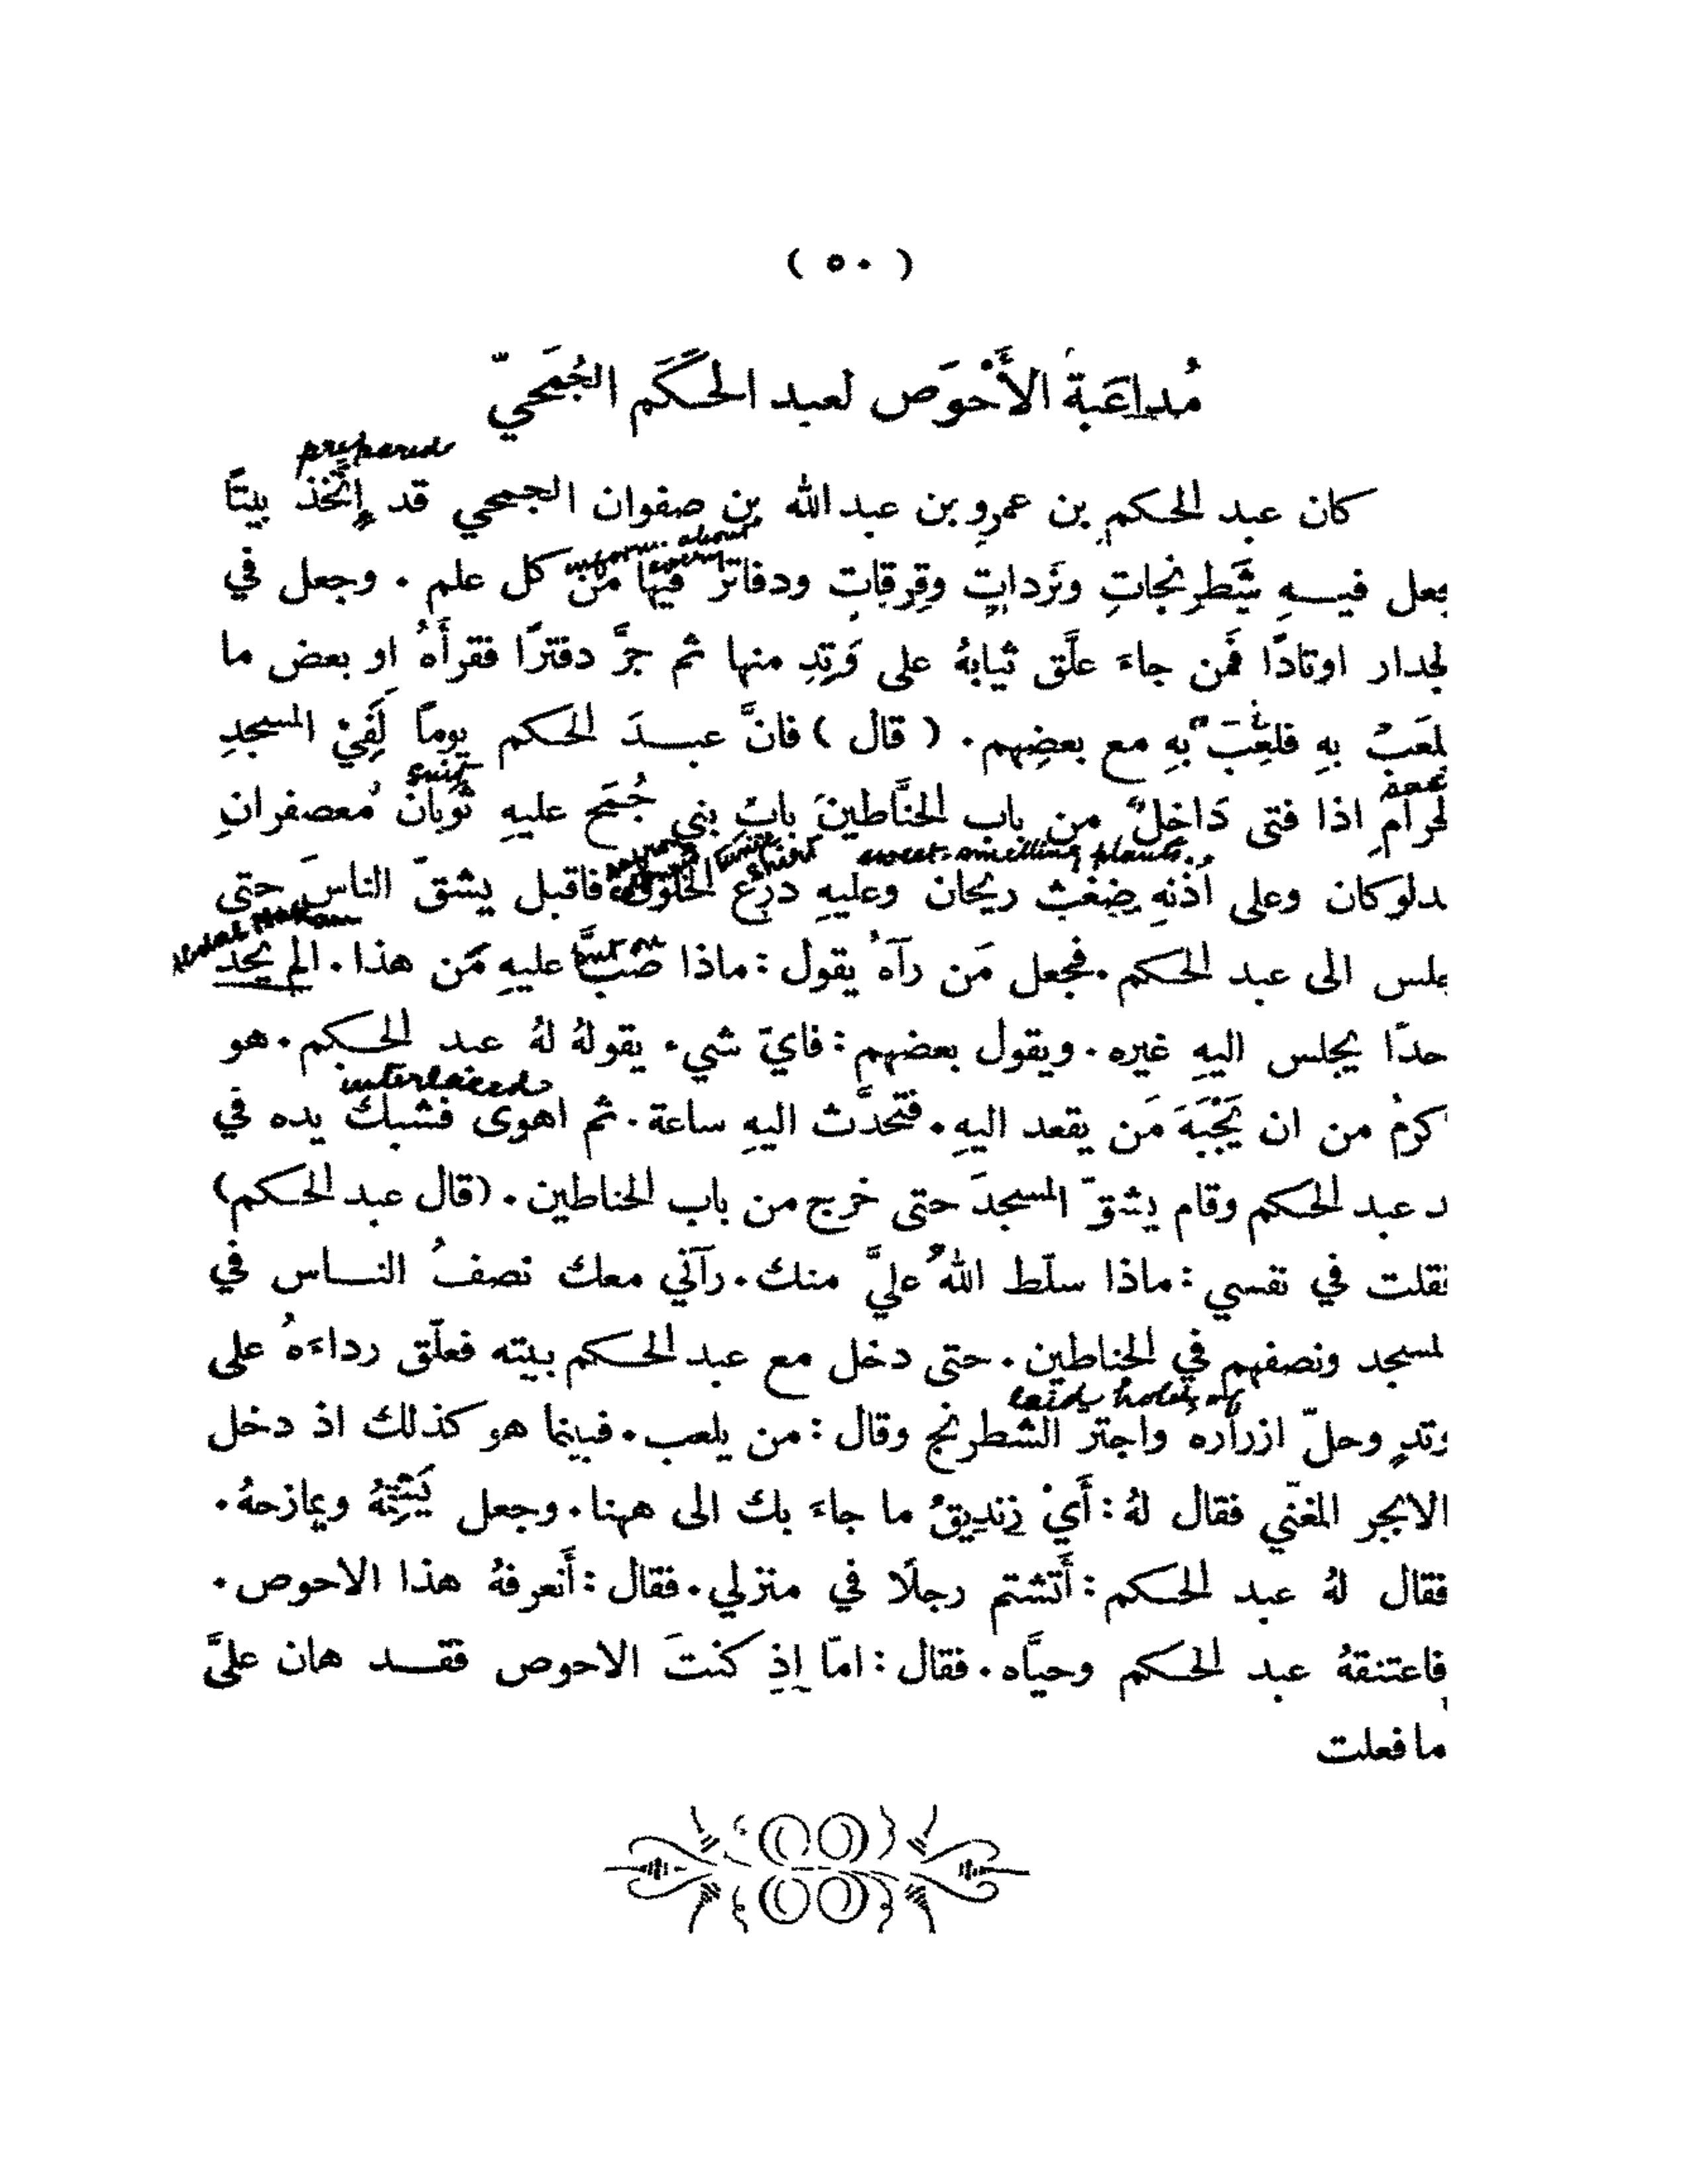 ( ٥٠ )
مُداعَبةُ الأَحْوَص لعبد الحَكَم الجُمَحيّ
prepared
كان عبد الحكم بن عمرو بن عبد الله بن صفوان الجمحي قد إِتَّخذ بيتًا
inform. about every
جعل فيــهِ شَطرنجاتٍ ونَردات وقِرقاتٍ ودفاتر فيها من كل علم . وجعل في
لجدار اوتادًا فمن جاءَ علَّق ثيابهُ على وَتِدِ منها ثم جرَّ دفترًا فقرأَهُ او بعض ما
لعَب بهِ فلعِبَ بهِ مع بعضِهم . ( قال ) فانَّ عبــدَ الحكم يومًا لَفِيْ المسجدِ
suit
لحرامِ اذا فتى دَاخِلٌ من باب الحنَّاطينَ بابِ بني جُمَح عليهِ ثَوبان مُعصفرانِ
shirt sweet-smelling plants
مدلوكان وعلى أذنهِ ضِغث ريحان وعليهِ درع الخَلوق فاقبل يشقّ الناسَ حتى
Abdal Hakam put on
جلس الى عبد الحكم . فجعل مَن رآهُ يقول : ماذا صَبَّ عليهِ مَن هذا . الم يجد
حدًا يجلس اليهِ غيره . ويقول بعضهم : فايّ شيء يقولهُ لهُ عبد الحكم . هو
interlaced
كرمُ من ان يَجْبَهَ مَن يقعد اليهِ . فتحدَّث اليهِ ساعة . ثم اهوى فشبك يده في
د عبد الحكم وقام يشقّ المسجدَ حتى خرج من باب الحناطين . (قال عبد الحكم)
فقلت في نفسي : ماذا سلّط اللهُ عليَّ منك . رآني معك نصفُ النــاس في
لمسجد ونصفهم في الحناطين . حتى دخل مع عبد الحكم بيته فعلّق رداءَهُ على
laid hold of
وتدٍ وحلّ ازراره واجترّ الشطرنج وقال : من يلعب . فبينما هو كذلك اذ دخل
الابجر المغنّي فقال لهُ : أَيْ زنديقُ ما جاءَ بك الى ههنا . وجعل يَشتِمُهُ ويمازحهُ .
فقال لهُ عبد الحكم : أَتشتم رجلًا في منزلي . فقال : أَتعرفهُ هذا الاحوص .
فاعتنقهُ عبد الحكم وحيَّاه . فقال : امّا إِذ كنتَ الاحوص فقــد هان عليَّ
ما فعلت